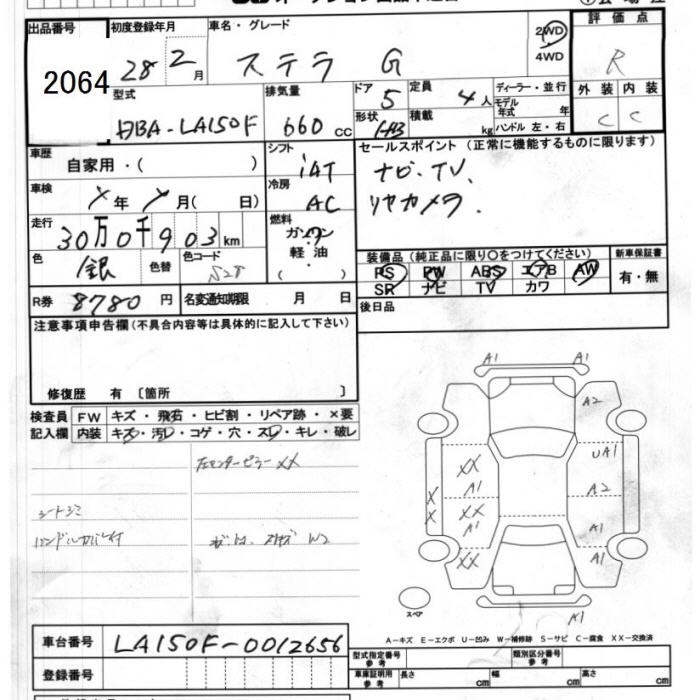 出品番号 初度登録年月 車名・グレード 2WD 4WD 評価点
2064 28 2月 ステラ G R
型式 排気量 ドア 定員 ディーラー・並行 外装 内装
DBA-LA150F 660cc 5 4人 モデル年式 年 C C
形状 H/B 積載 kg ハンドル 左・右
車歴 自家用・( ) シフト iAT セールスポイント (正常に機能するものに限ります)
車検 年 月( 日) 冷房 AC ナビ. TV.
リヤカメラ.
走行 30万0千903km 燃料 ガソリン 軽油 ( )
色 銀 色替 色コード S28
装備品 (純正品に限り○をつけてください) 新車保証書
PS PW ABS エアB AW 有・無
SR ナビ TV カワ
R券 8780円 名変通知期限 月 日 後日品
注意事項申告欄 (不具合内容等は具体的に記入して下さい)
修復歴 有 〔箇所 〕
検査員 FW キズ・飛石・ヒビ割・リペア跡・×要
記入欄 内装 キズ・汚レ・コゲ・穴・スレ・キレ・破レ
左センターピラー XX
シートシミ
ハンドルカバー付
W2
A1 A1
A2
UA1
XX
A1 A2
X
X XX
A1 A1
XX A1
スペア
A1
A-キズ E-エクボ U-凹み W-補修跡 S-サビ C-腐食 XX-交換済
車台番号 LA150F-0012656
登録番号
型式指定番号 参考 類別区分番号 参考
車庫証明用 参考 長さ cm 幅 cm 高さ cm